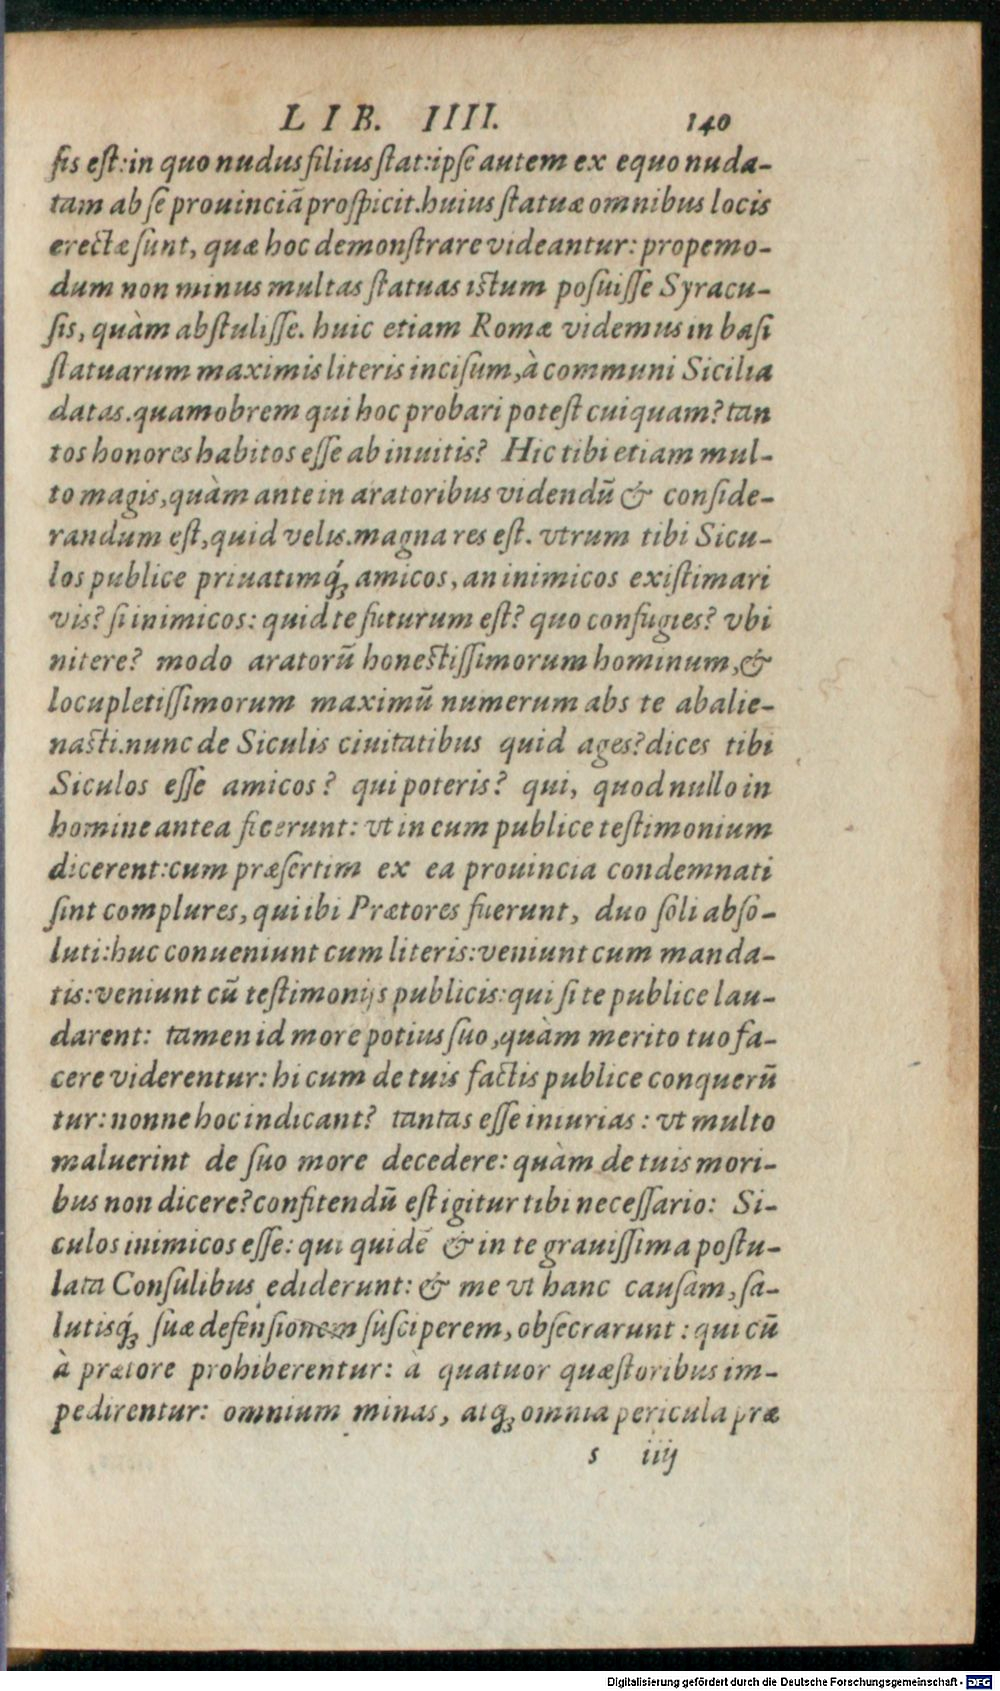 LIB. IIII. 140
ſis eſt:in quo nudus filius ſtat:ipſe autem ex equo nuda-
tam ab ſe prouinciã proſpicit.huius ſtatuæ omnibus locis
erectæ ſunt, quæ hoc demonſtrare videantur: propemo-
dum non minus multas ſtatuas iſtum poſuiſſe Syracu-
ſis, quàm abſtuliſſe. huic etiam Romæ videmus in baſi
ſtatuarum maximis literis inciſum,à communi Sicilia
datas.quamobrem qui hoc probari poteſt cuiquam?tan
tos honores habitos eſſe ab inuitis? Hic tibi etiam mul-
to magis,quàm ante in aratoribus videndũ & conſide-
randum eſt,quid velis.magna res eſt. vtrum tibi Sicu-
los publice priuatimq́; amicos, an inimicos exiſtimari
vis? ſi inimicos: quid te futurum eſt? quo confugies? vbi
nitere? modo aratorũ honeſtiſſimorum hominum,&
locupletiſſimorum maximũ numerum abs te abalie-
naſti.nunc de Siculis ciuitatibus quid ages?dices tibi
Siculos eſſe amicos? qui poteris? qui, quod nullo in
homine antea fecerunt: vt in eum publice teſtimonium
dicerent:cum præſertim ex ea prouincia condemnati
ſint complures, qui ibi Prætores fuerunt, duo ſoli abſo-
luti:huc conueniunt cum literis:veniunt cum manda-
tis:veniunt cũ teſtimonijs publicis:qui ſi te publice lau-
darent: tamen id more potius ſuo,quàm merito tuo fa-
cere viderentur: hi cum de tuis factis publice conquerũ
tur: nonne hoc indicant? tantas eſſe iniurias: vt multo
maluerint de ſuo more decedere: quàm de tuis mori-
bus non dicere?confitendũ eſt igitur tibi neceſſario: Si-
culos inimicos eſſe: qui quidẽ & in te grauiſſima poſtu-
lata Conſulibus ediderunt: & me vt hanc cauſam, ſa-
lutisq́; ſuæ defenſionem ſuſciperem, obſecrarunt: qui cũ
à prætore prohiberentur: à quatuor quæſtoribus im-
pedirentur: omnium minas, atq; omnia pericula præ
s iiij
Digitalisierung gefördert durch die Deutsche Forschungsgemeinschaft - DFG